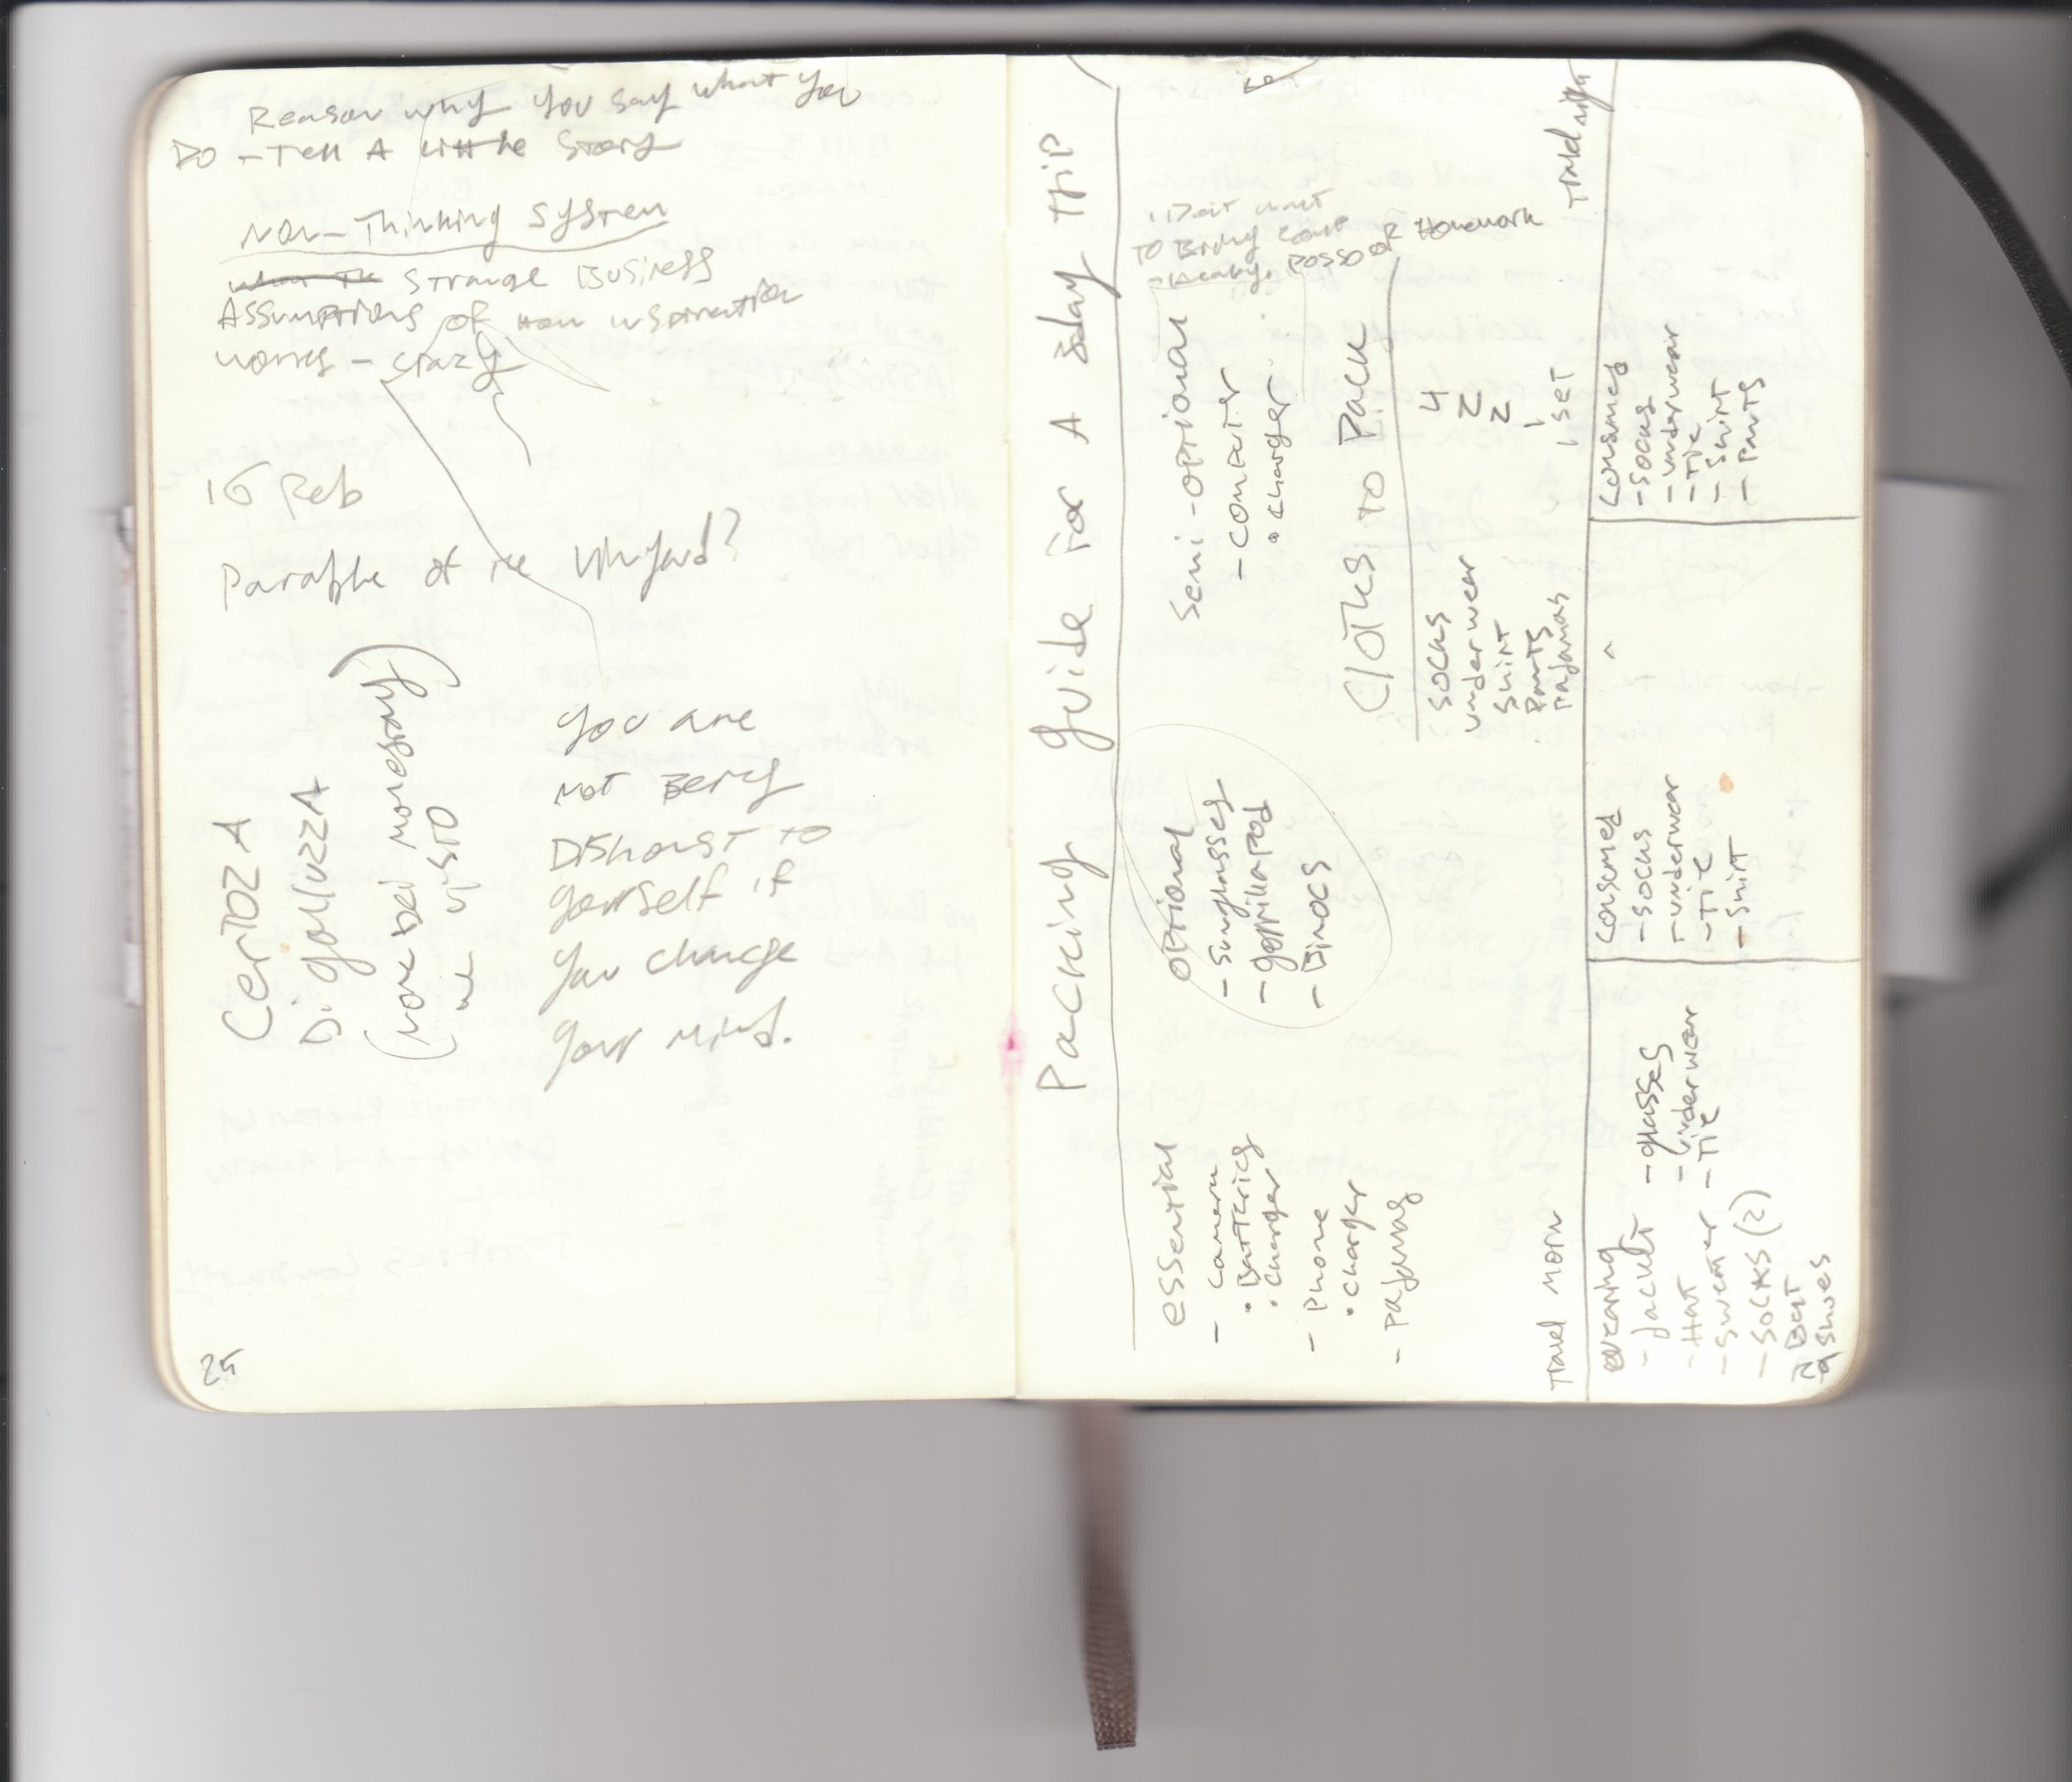 Reason why you say what you
DO - Tell A little Story
NON-Thinking System
what the Strange Business
Assumptions of How inspiration
works - crazy
16 Feb
Parable of the Vinyard?
CerTOZA
Di galluzzA
(nove dei
visto
you are
not Being
Dishonest to
yourself if
you change
your mind.
25
Packing guide For A 3day Trip
essential
- camera
• Batteries
• charger
- Phone
• charger
- Pajamas
optional
- sunglasses
- gorrillapod
- Binocs
semi-optional
- computer
o charger
Don't want
TO Bring
Homework
Clothes to Pack
socks 4
underwear 2
shirt 2
Pants 1
Pajamas 1 set
Travel morn
wearing
- Jacket
- Hat
- sweater
- socks (2)
- Belt
- shoes
- glasses
- underwear
- Tie
consumed
- socks
- underwear
- Tie
- shirt
Travel night
consumed
- socks
- underwear
- Tie
- shirt
- Pants